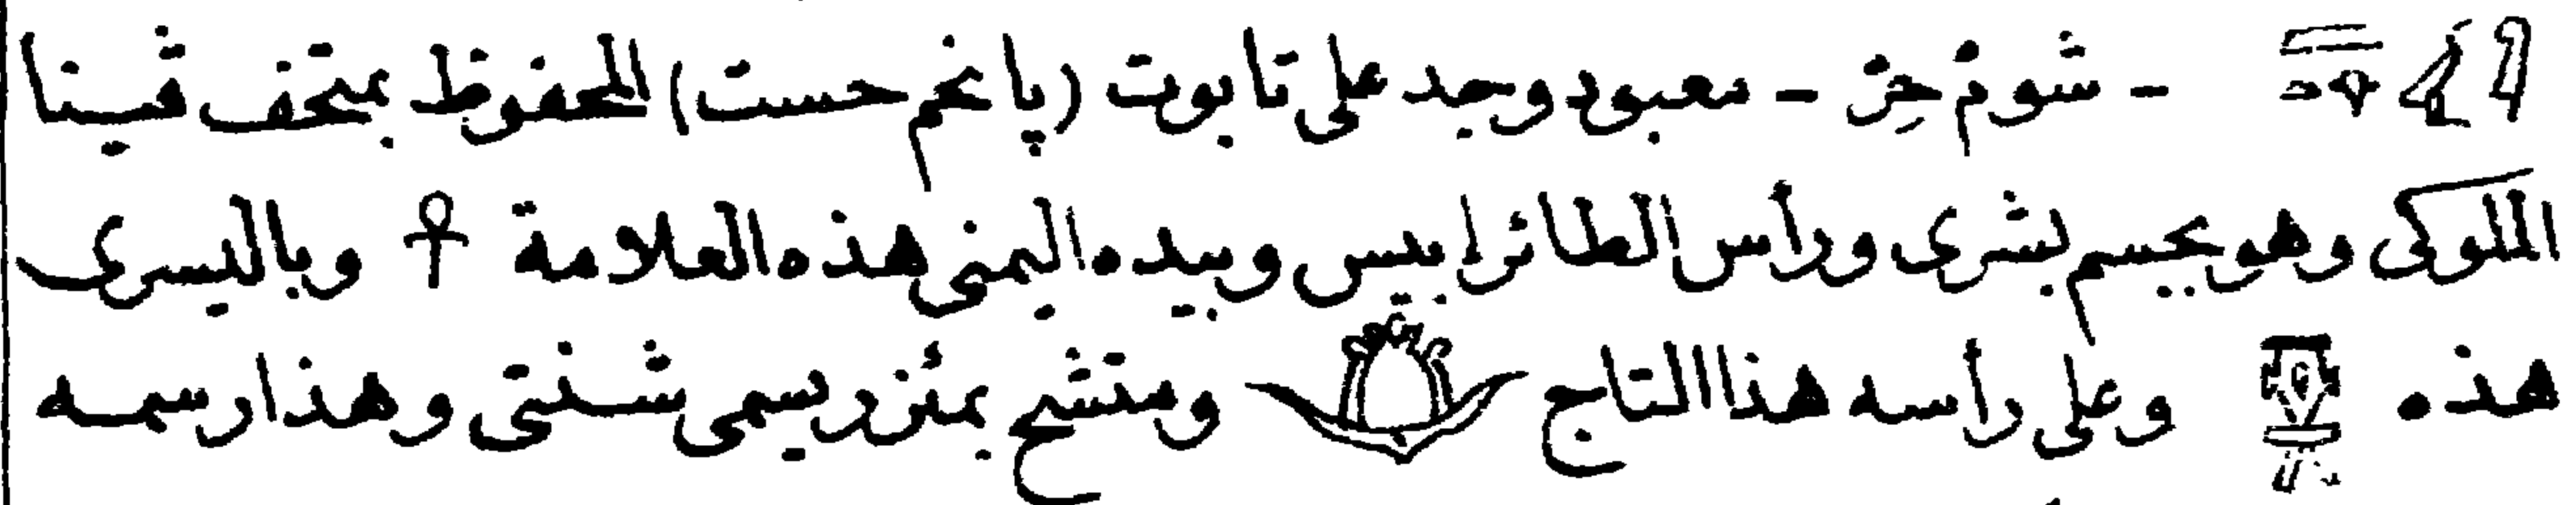 - شوم حز - معبود وجد على تابوت (پا نخم حست) المحفوظ بمتحف ڤينا
الملوكى وهو بجسم بشرى ورأس الطائر ابيس وبيده اليمنى هذه العلامة ☥ وباليسرى
هذه وعلى رأسه هذا التاج ومتشح بمئزر يسمى شنتى وهذا رسمه